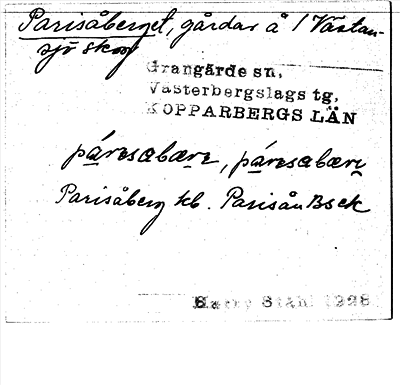 Parisåberget, gårdar å 1 Västan-
sjö skog
Grangärde sn,
Västerbergslags tg,
KOPPARBERGS LÄN
páresabærɛ, páresabærɛ
Parisåberg kb. Parisån Bsek
Harry Ståhl 1928